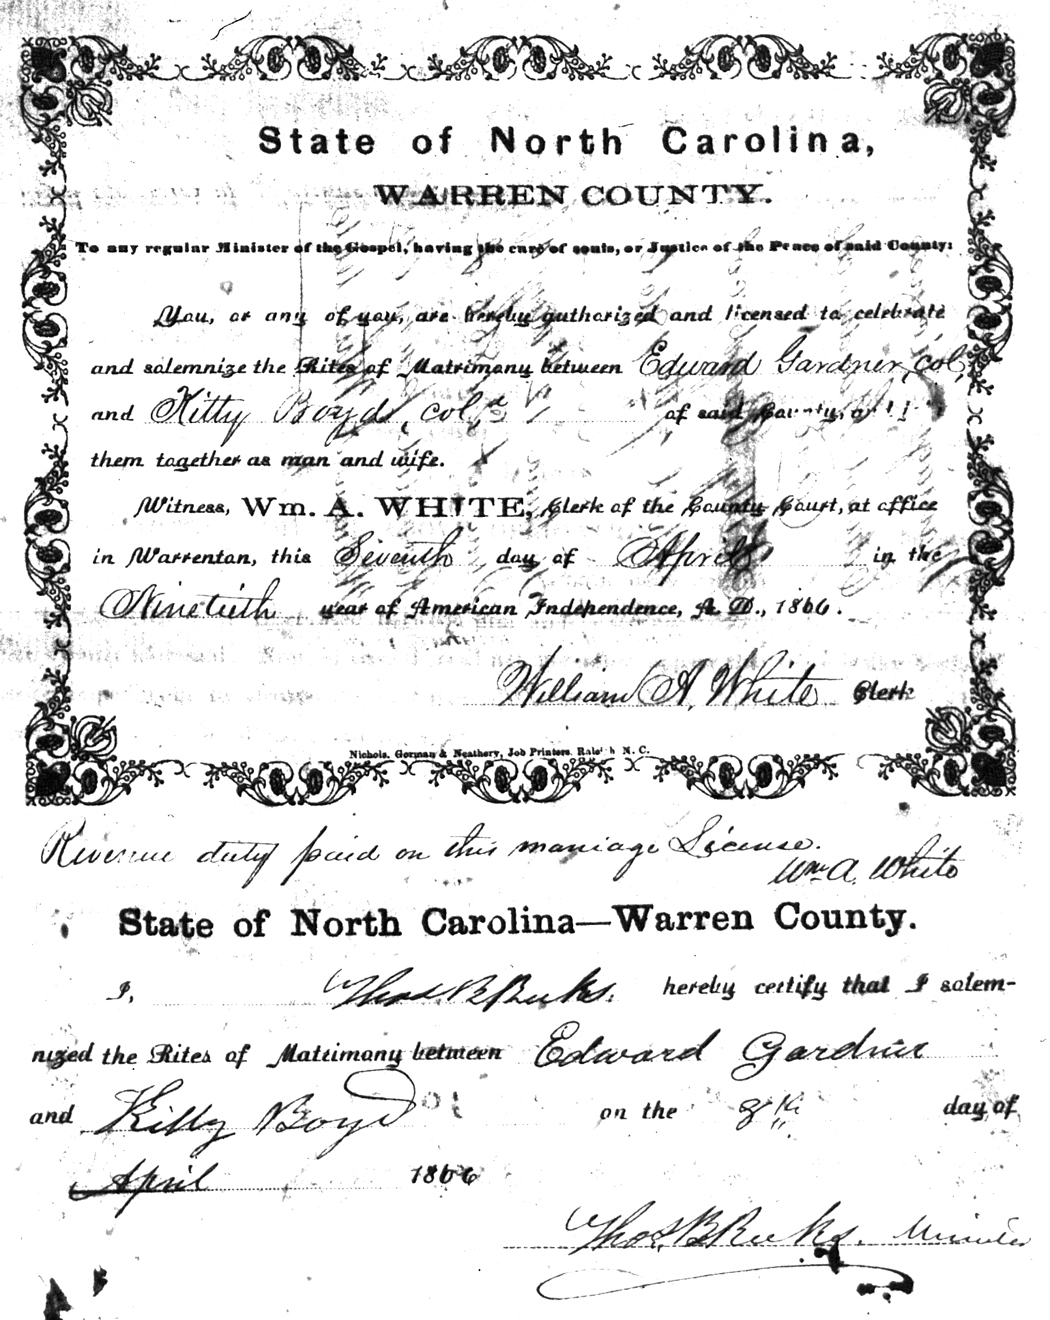 State of North Carolina,
WARREN COUNTY.
To any regular Minister of the Gospel, having the care of souls, or Justice of the Peace of said County:
You, or any of you, are hereby authorized and licensed to celebrate
and solemnize the Rites of Matrimony between Edward Gardner, col,
and Kitty Boyd, col,d of said County,
them together as man and wife.
Witness, Wm. A. WHITE, Clerk of the County Court, at office
in Warrenton, this Seventh day of April in the
Ninetieth year of American Independence, A. D., 1866.
William A. White Clerk
Nichols, Gorman & Neathery, Job Printers, Raleigh N. C.
Revenue duty paid on this marriage License.
Wm A. White
State of North Carolina—Warren County.
I, Thos. B. hereby certify that I solem-
nized the Rites of Matrimony between Edward Gardner
and Kitty Boyd on the 8th day of
April 1866
Thos. B. Minister